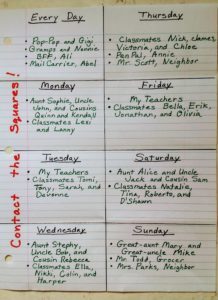 Contact the Squares!
Every Day
• Pop-Pop and Gigi
• Gramps and Nannie
• BFF, Ali
• Mail Carrier, Abel
Thursday
• Classmates Nick, James,
Victoria, and Chloe
• Pen Pal, Annie
• Mr. Scott, Neighbor
Monday
• Aunt Sophie, Uncle
John, and Cousins
Quinn and Kendall
• Classmates Lexi
and Lanny
Friday
• My Teachers
• Classmates Bella, Erik,
Jonathan, and Olivia
Tuesday
• My Teachers
• Classmates Tomi,
Tony, Sarah, and
Devonne
Saturday
• Aunt Alice and Uncle
Jack and Cousin Sam
• Classmates Natalie,
Tina, Roberto, and
D'Shawn
Wednesday
• Aunt Stephy,
Uncle Bob, and
Cousin Rebecca
• Classmates Ella,
Nikki, Colin, and
Harper
Sunday
• Great-aunt Mary and
Great-uncle Mike
• Mr. Todd, Grocer
• Mrs. Parks, Neighbor